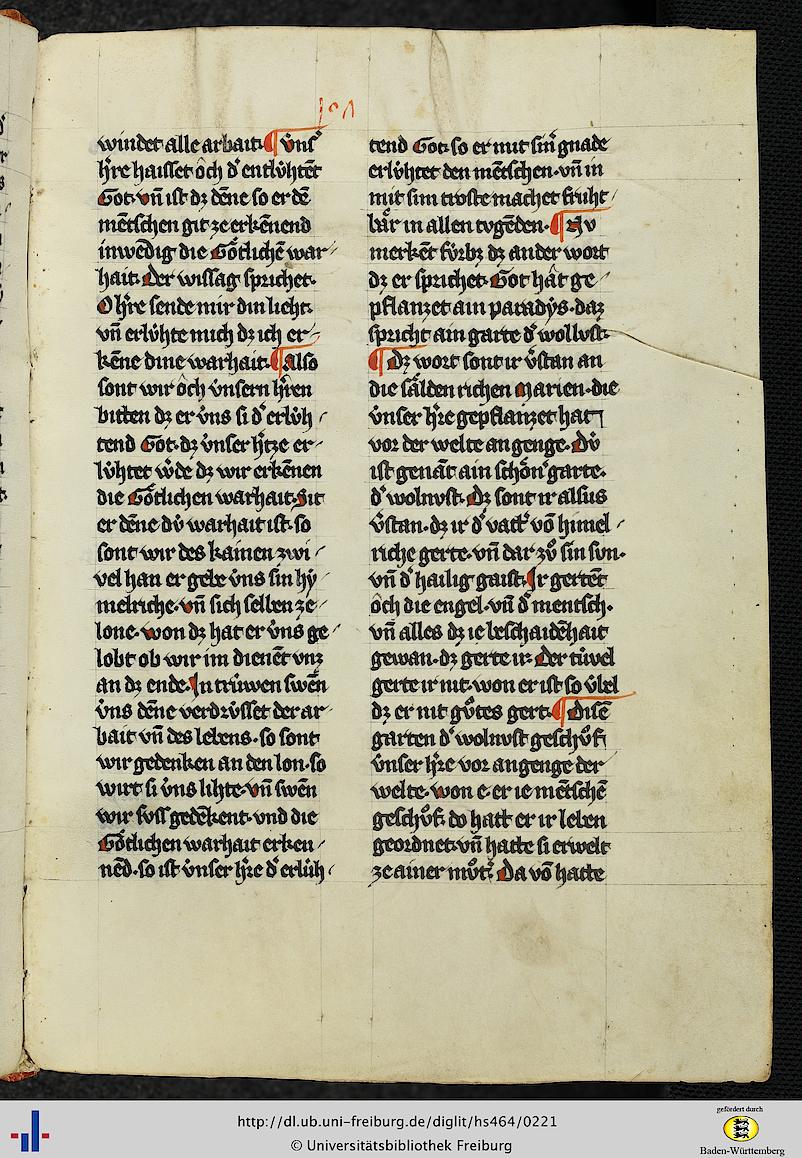 windet alle arbait. ¶ v̊ns̾
h̾re haisset ôch d̾ entlv̊htēt
Got. vn̄ ist dz dēne so er dē
mētschen git ze erkēnend
inwēdig die Go̊tlichē war⸗
hait. Der wissag sprichet.
O h̾re sende mir din lieht.
vn̄ erlv̊hte mich dz ich er⸗
kēne dine warhait. ¶ Also
sont wir ôch v̊nsern h̾ren
bitten dz er v̊ns si d̾ erlv̊h⸗
tend Got. dz v̊nser h̾tze er⸗
lv̊htet w̾de dz wir erkēnen
die Go̊tlichen warhait. Sit
er dēne dv̊ warhait ist. so
sont wir des kainen zwi⸗
vel han er gebe v̊ns sin hẏ
melriche. vn̄ sich selben ze⸗
lone. won dz hat er v̊ns ge⸗
lobt ob wir im dienēt vnz
an dz ende. In trv̊wen swēn
v̊ns dēne verdrv̊sset der ar⸗
bait vn̄ des lebens. so sont
wir gedenken an den lon. so
wirt si v̊ns lihte. vn̄ swēn
wir svss gedēkent. vnd die
Go̊tlichen warhait erken⸗
nēd. so ist v̊nser h̾re d̾ erlv̊h⸗
tend Got. so er mit sin̄ gnade
erlv̊htet den mētschen. vn̄ in
mit sim troste machet fruht⸗
bår in allen tvgēden. ¶ Nv
merkēt fv̊rbz dz ander wort
dz er sprichet. Got hât ge⸗
pflanzet ain paradẏs. daz
spricht ain garte d̾ wollvst.
¶ Dz wort sont ir v̊stan an
die sålden richen Marien. die
v̊nser h̾re gepflanzet hat
vor der welte angenge. Dv̊
ist genāt ain scho̊n garte.
d̾ wolnvst. Dz sont ir alsus
v̊stan. dz ir d̾ vatt̾ vō himel⸗
riche gerte. vn̄ dar zv̊ sin svn.
vn̄ d̾ hailig gaist. Ir gertēt
ôch die engel. vn̄ d̾ mentsch.
vn̄ alles dz ie beschaidēhait
gewan. dz gerte ir. Der tiuvel
gerte ir nit. won er ist so v̊bel
dz er nit gv̊tes gert. ¶ Disē
garten d̾ wolnvst geschv̊f
v̊nser h̾re vor angenge der
welte. won e. er ie mētschē
geschv̊f. do hatt er ir leben
geordnet. vn̄ hatte si erwelt
ze ainer mv̊t̾. Da vō hatte
http://dl.ub.uni-freiburg.de/diglit/hs464/0221
© Universitätsbibliothek Freiburg
gefördert durch
Baden-Württemberg